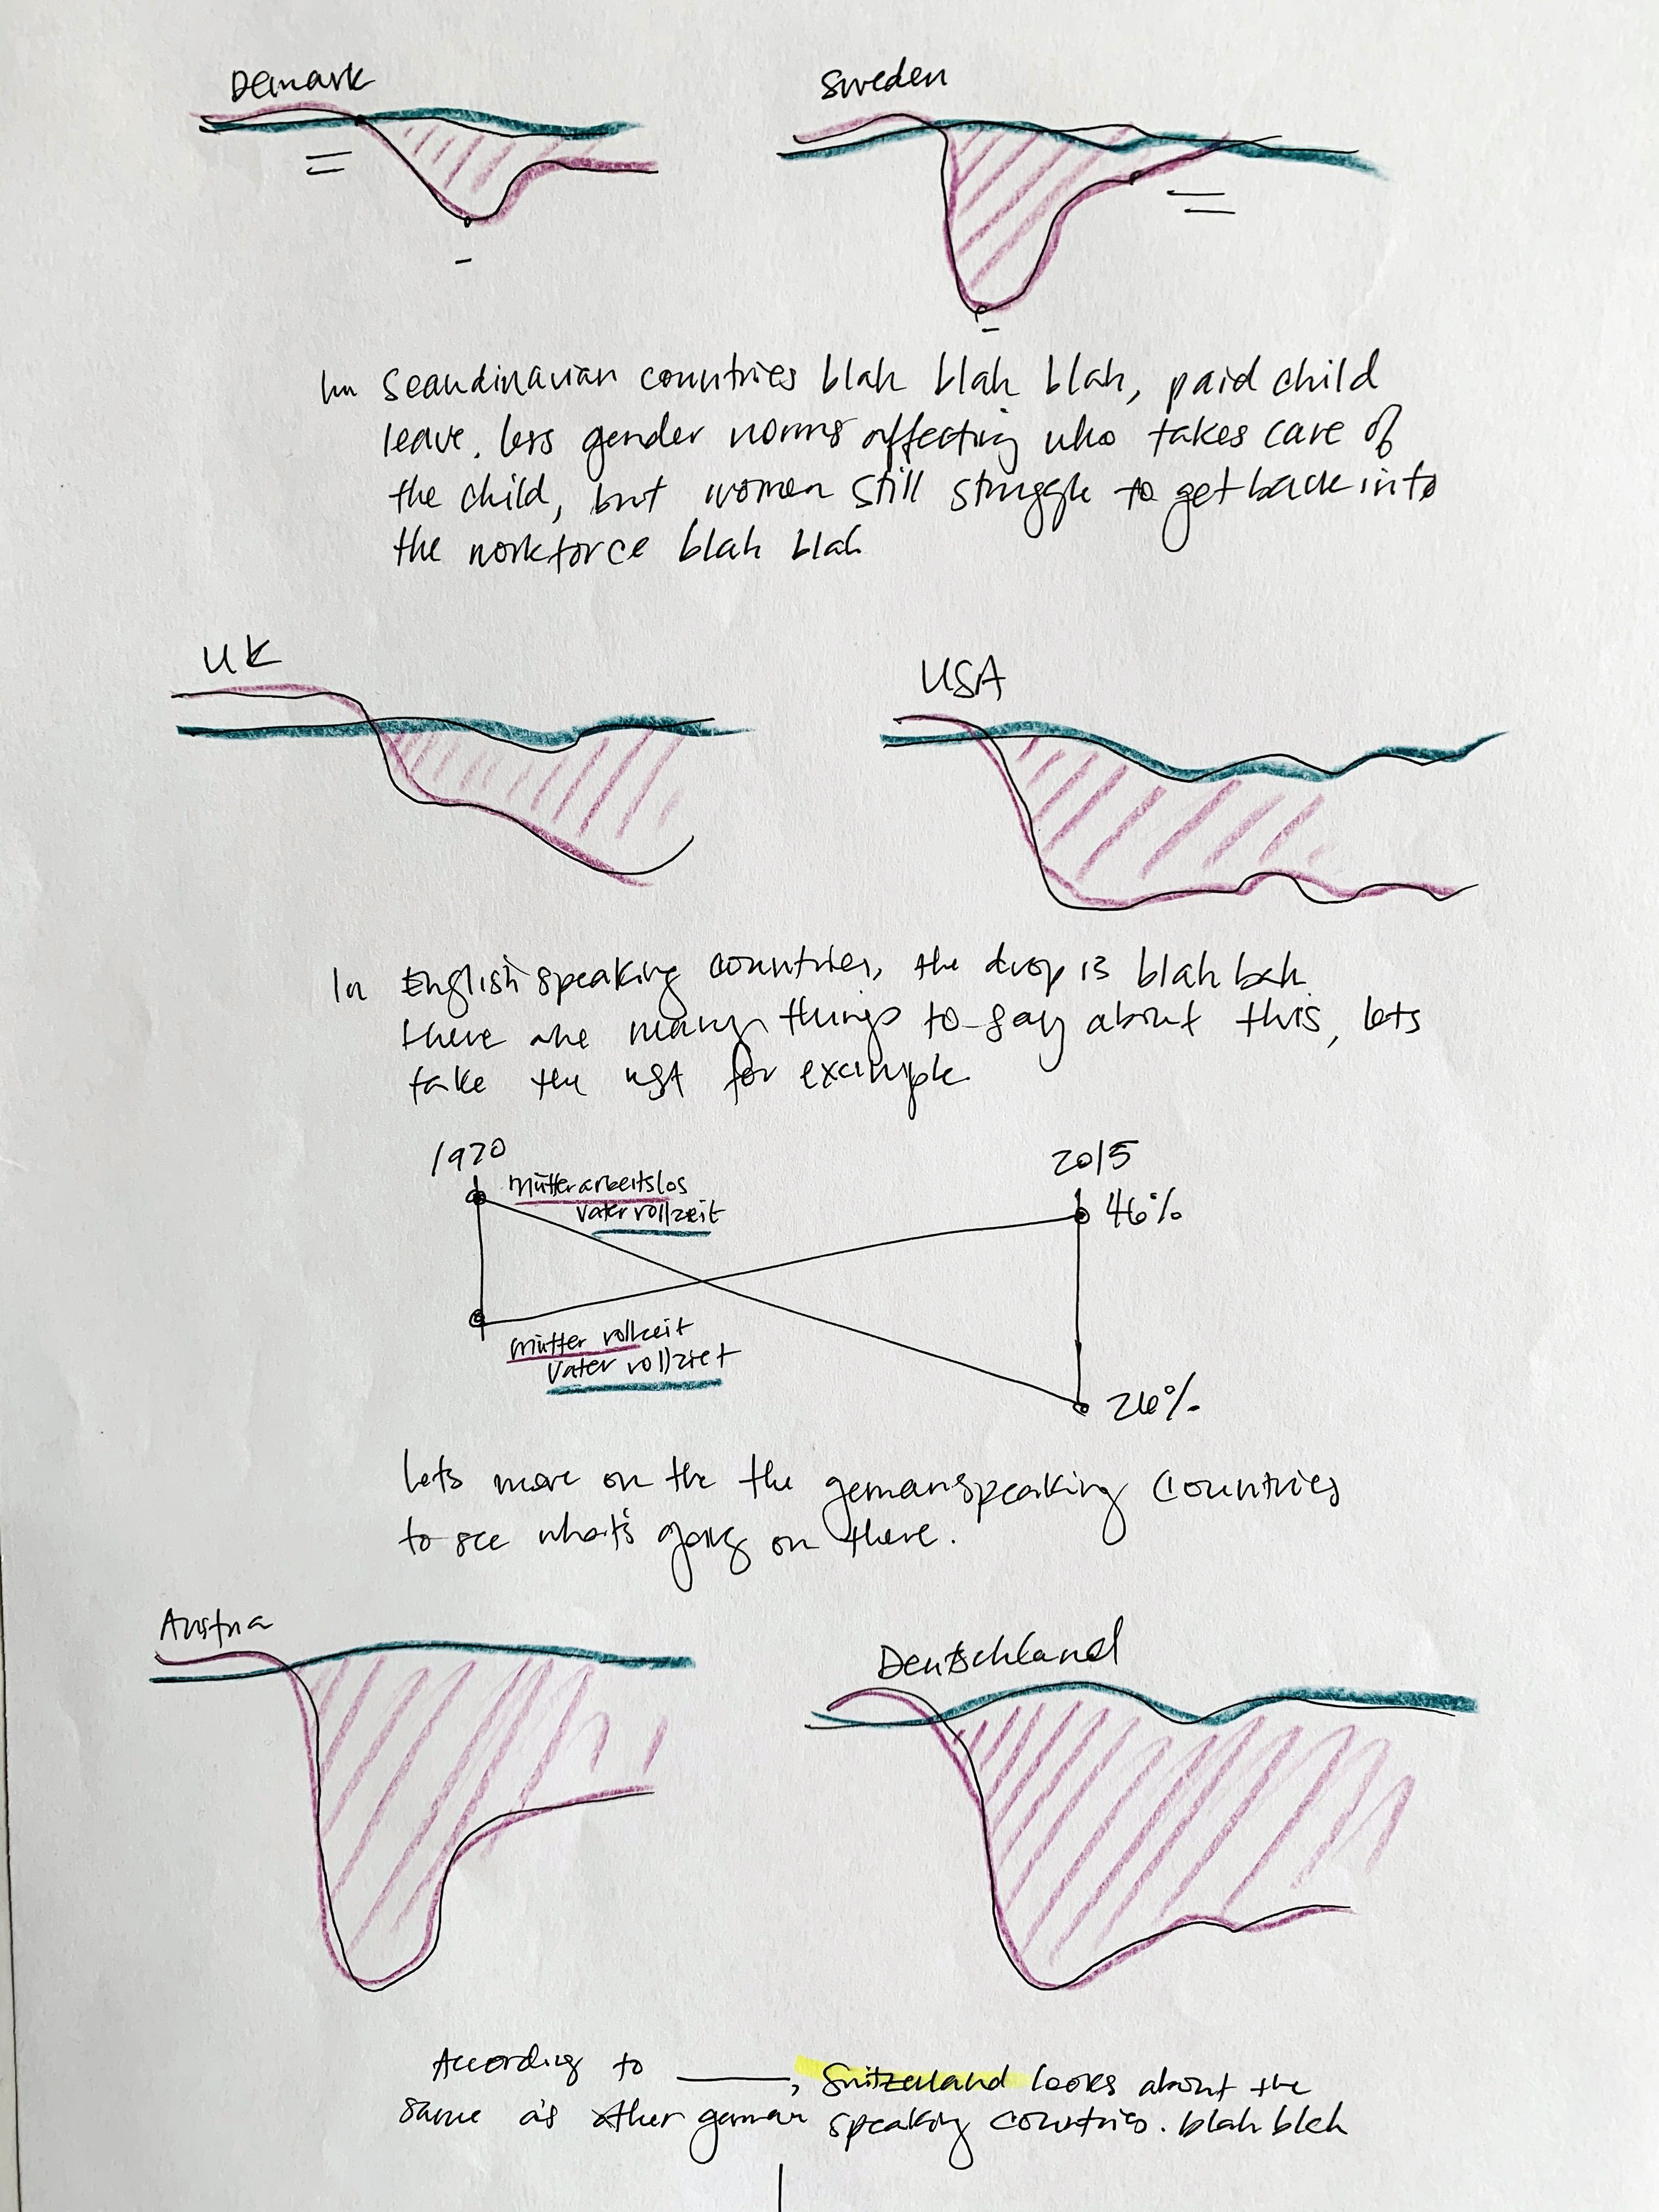 Demark
Sweden
In Scandinavian countries blah blah blah, paid child
leave. less gender norms affecting who takes care of
the child, but women still struggle to get back into
the workforce blah blah
UK
USA
In English speaking countries, the drop is blah bah
there are many things to say about this, lets
take the USA for example.
1970
2015
Mütter arbeitslos
Vater vollzeit
46%
Mütter vollzeit
Vater vollziet
26%
Lets move on the the german speaking countries
to see what's going on there.
Austria
Deutschland
According to ____, Switzerland looks about the
same as other german speaking countries. blah blah